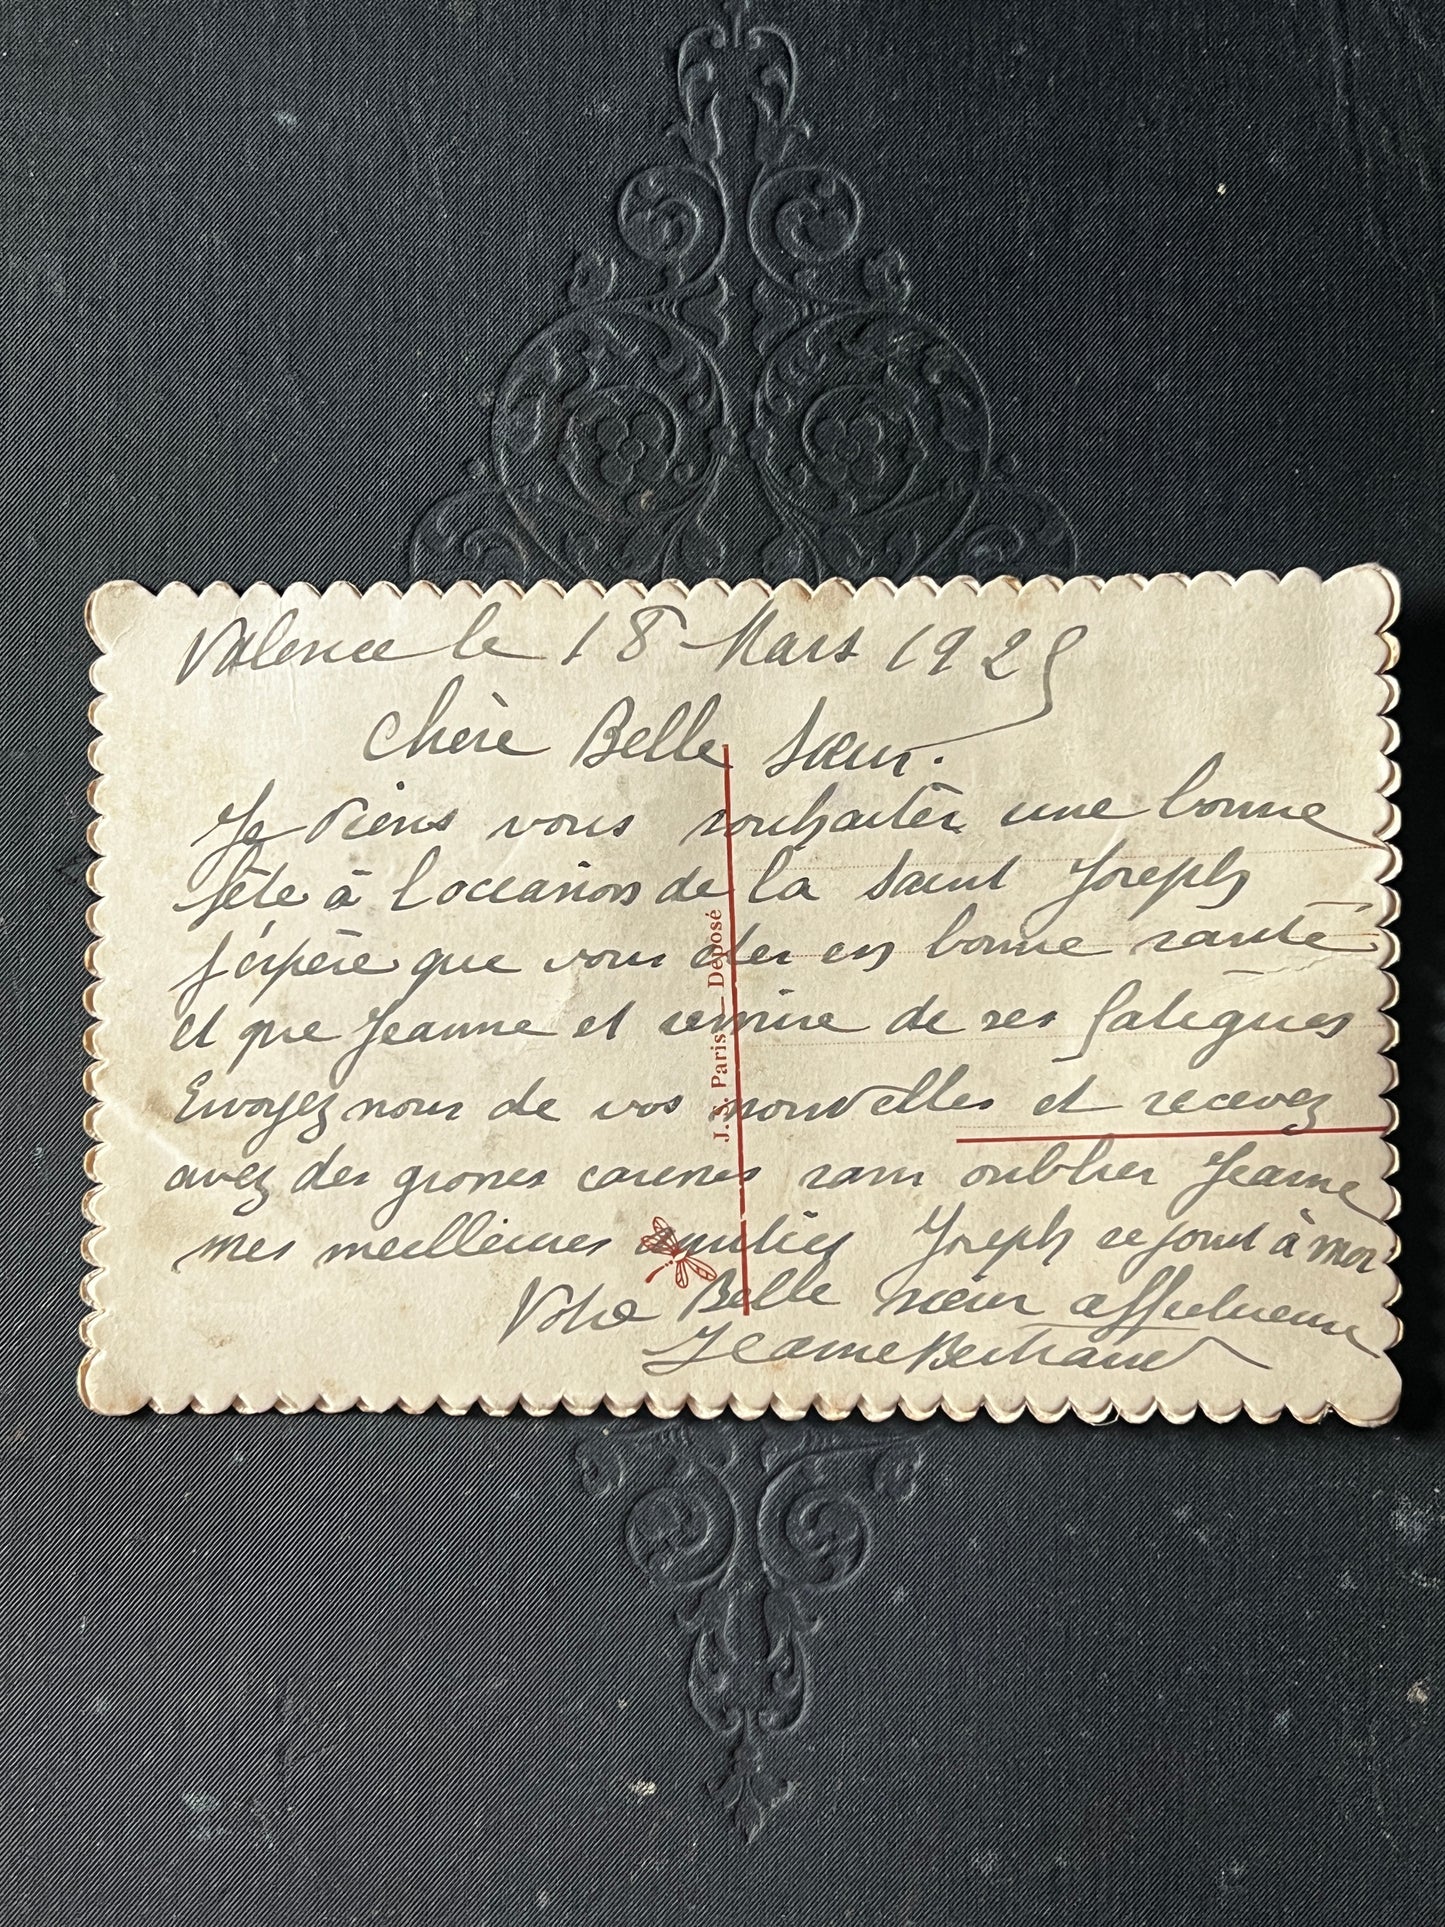 Valence le 18 Mars 1925
Chère Belle Sœur.
Je viens vous souhaiter une bonne
fête à l'occasion de la Saint Joseph
j'espère que vous etes en bonne santé
et que Jeanne et remise de ses fatigues
Envoyez nous de vos nouvelles et recevez
avez des grosses caresses sans oublier Jeanne
mes meilleures amitiés Joseph se joint à moi
Votre Belle sœur affectueuse
Jeanne Bertrand
J. S. Paris — Déposé